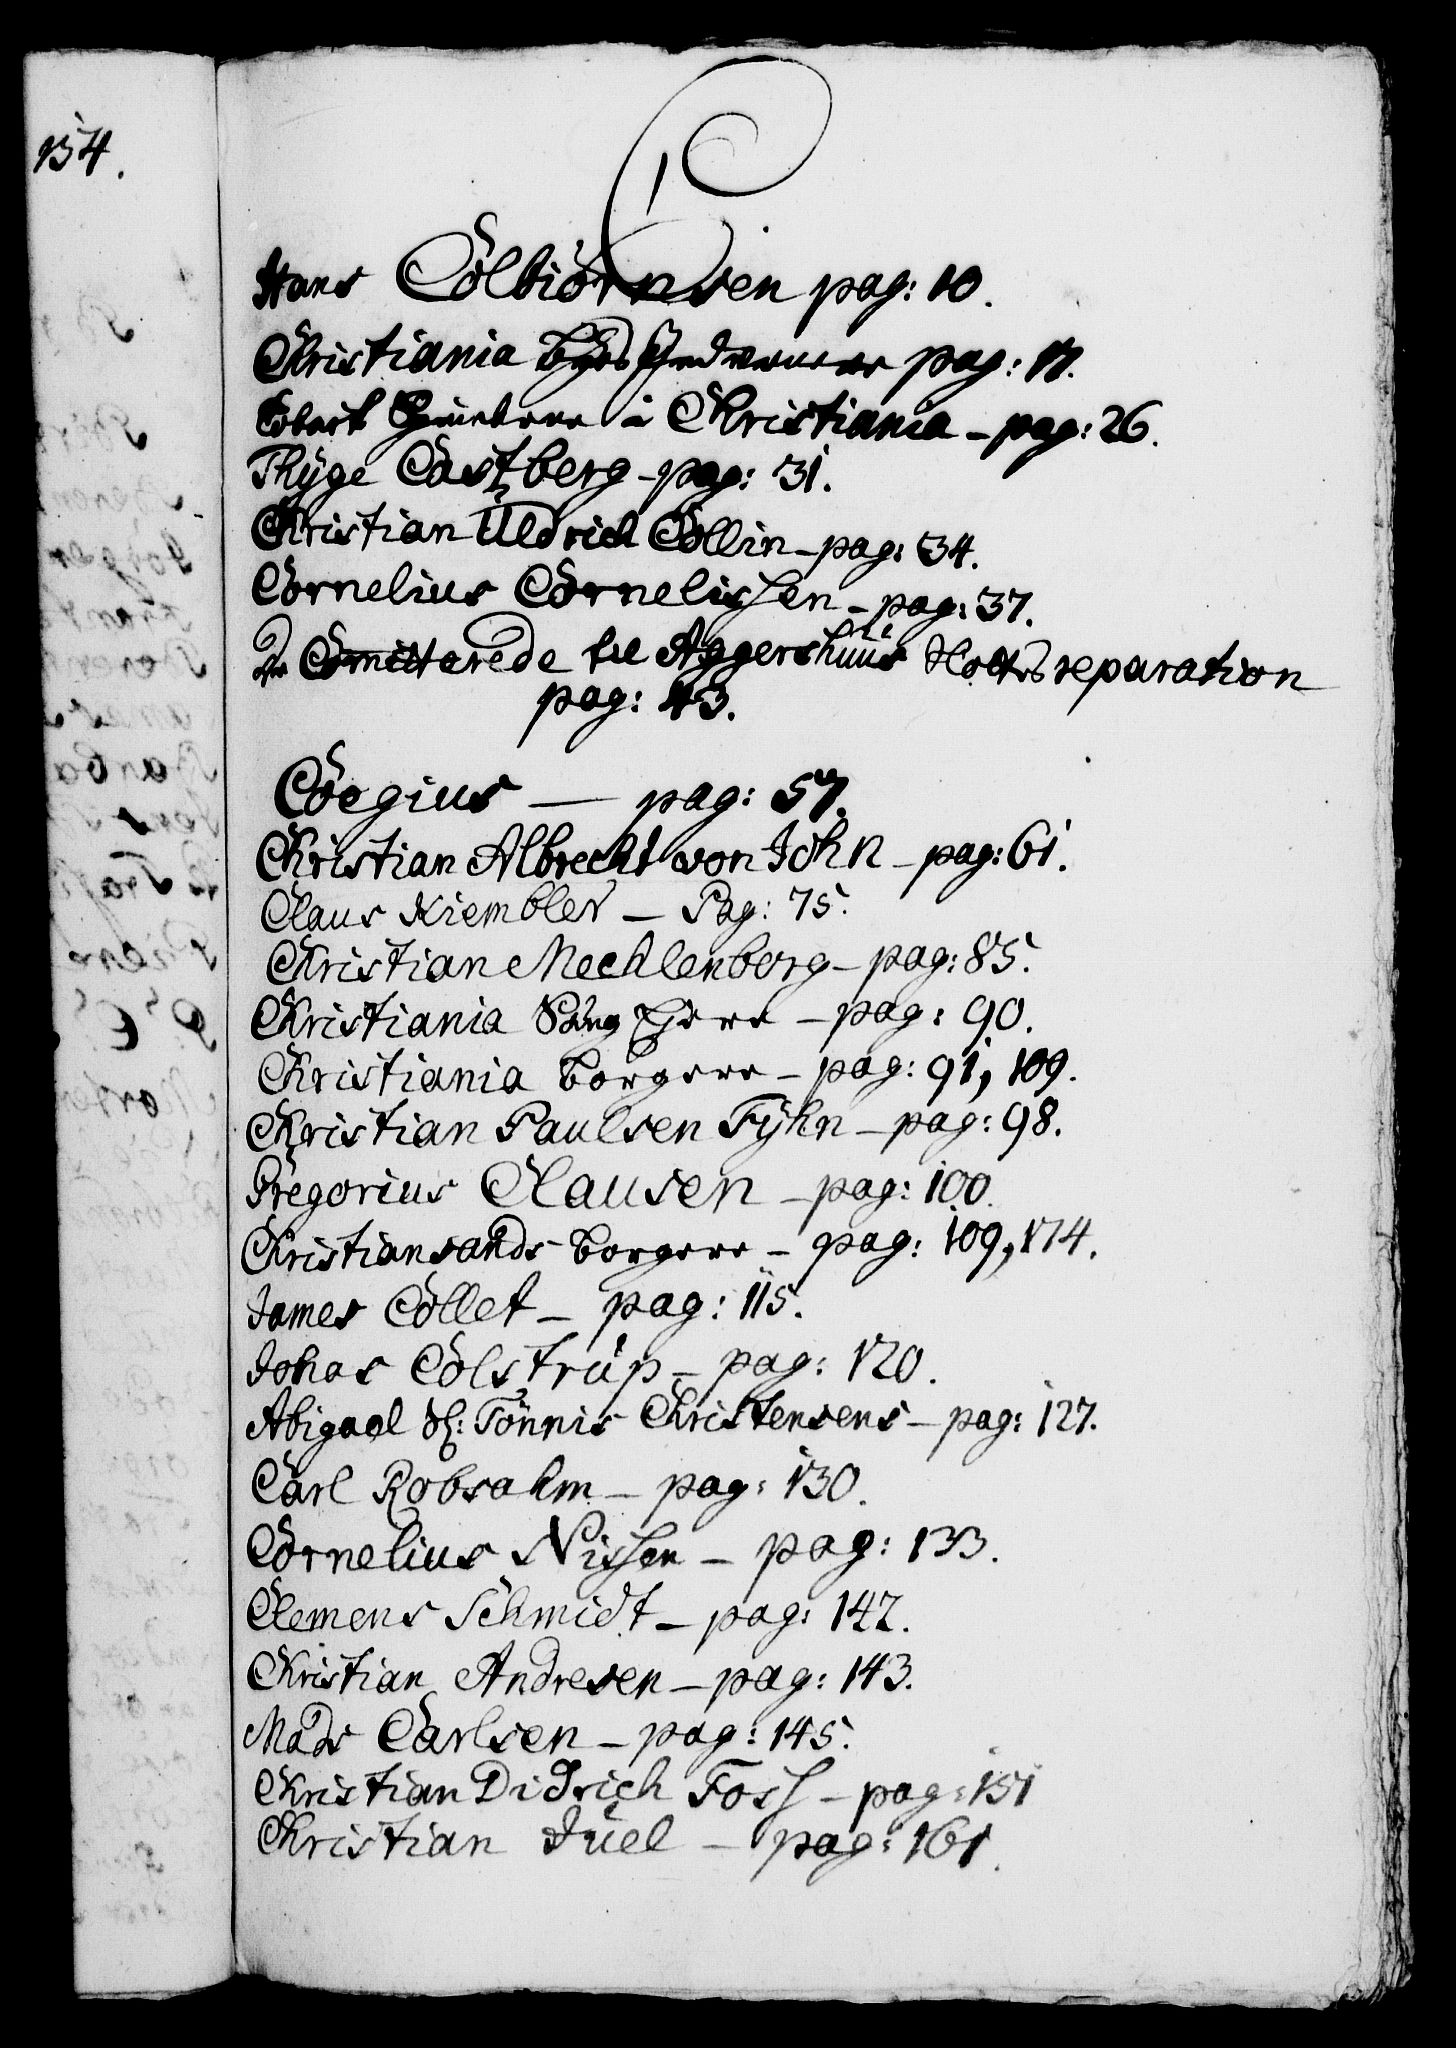 134.
C
Hans Colbiörnsen pag: 10.
Christiania Byes pag: 11.
Tobach Spindere i Christiania – pag: 26.
Thÿge Castberg – pag: 31.
Christian Uldrich Collin – pag: 34.
Cornelius Cornelissen – pag: 37.
De Comitterede til Aggershuus Slotts reparation
pag: 43.
Coegius — pag: 57.
Christian Albrecht von John – pag: 61.
Claus Kiembler – Pag: 75.
Christian Mechlenborg – pag: 85.
Christiania Saug Eÿere – pag: 90.
Christiania Borgere – pag: 91, 109.
Christian Paulsen Fÿhn – pag: 98.
Gregorius Clausen – pag: 100.
Christiansands Borgere – pag: 109, 174.
James Collet – pag: 115.
Johas Colstrup – pag: 120.
Abigael Sl: Tönnis Christensens – pag: 127.
Carl Robsahm – pag: 130.
Cornelius Nissen – pag: 133.
Clemens Schmidt – pag: 142.
Christian Andresen – pag: 143.
Mads Carlsen – pag: 145.
Christian Didrich Foss – pag: 151
Christian Juel – pag: 161.